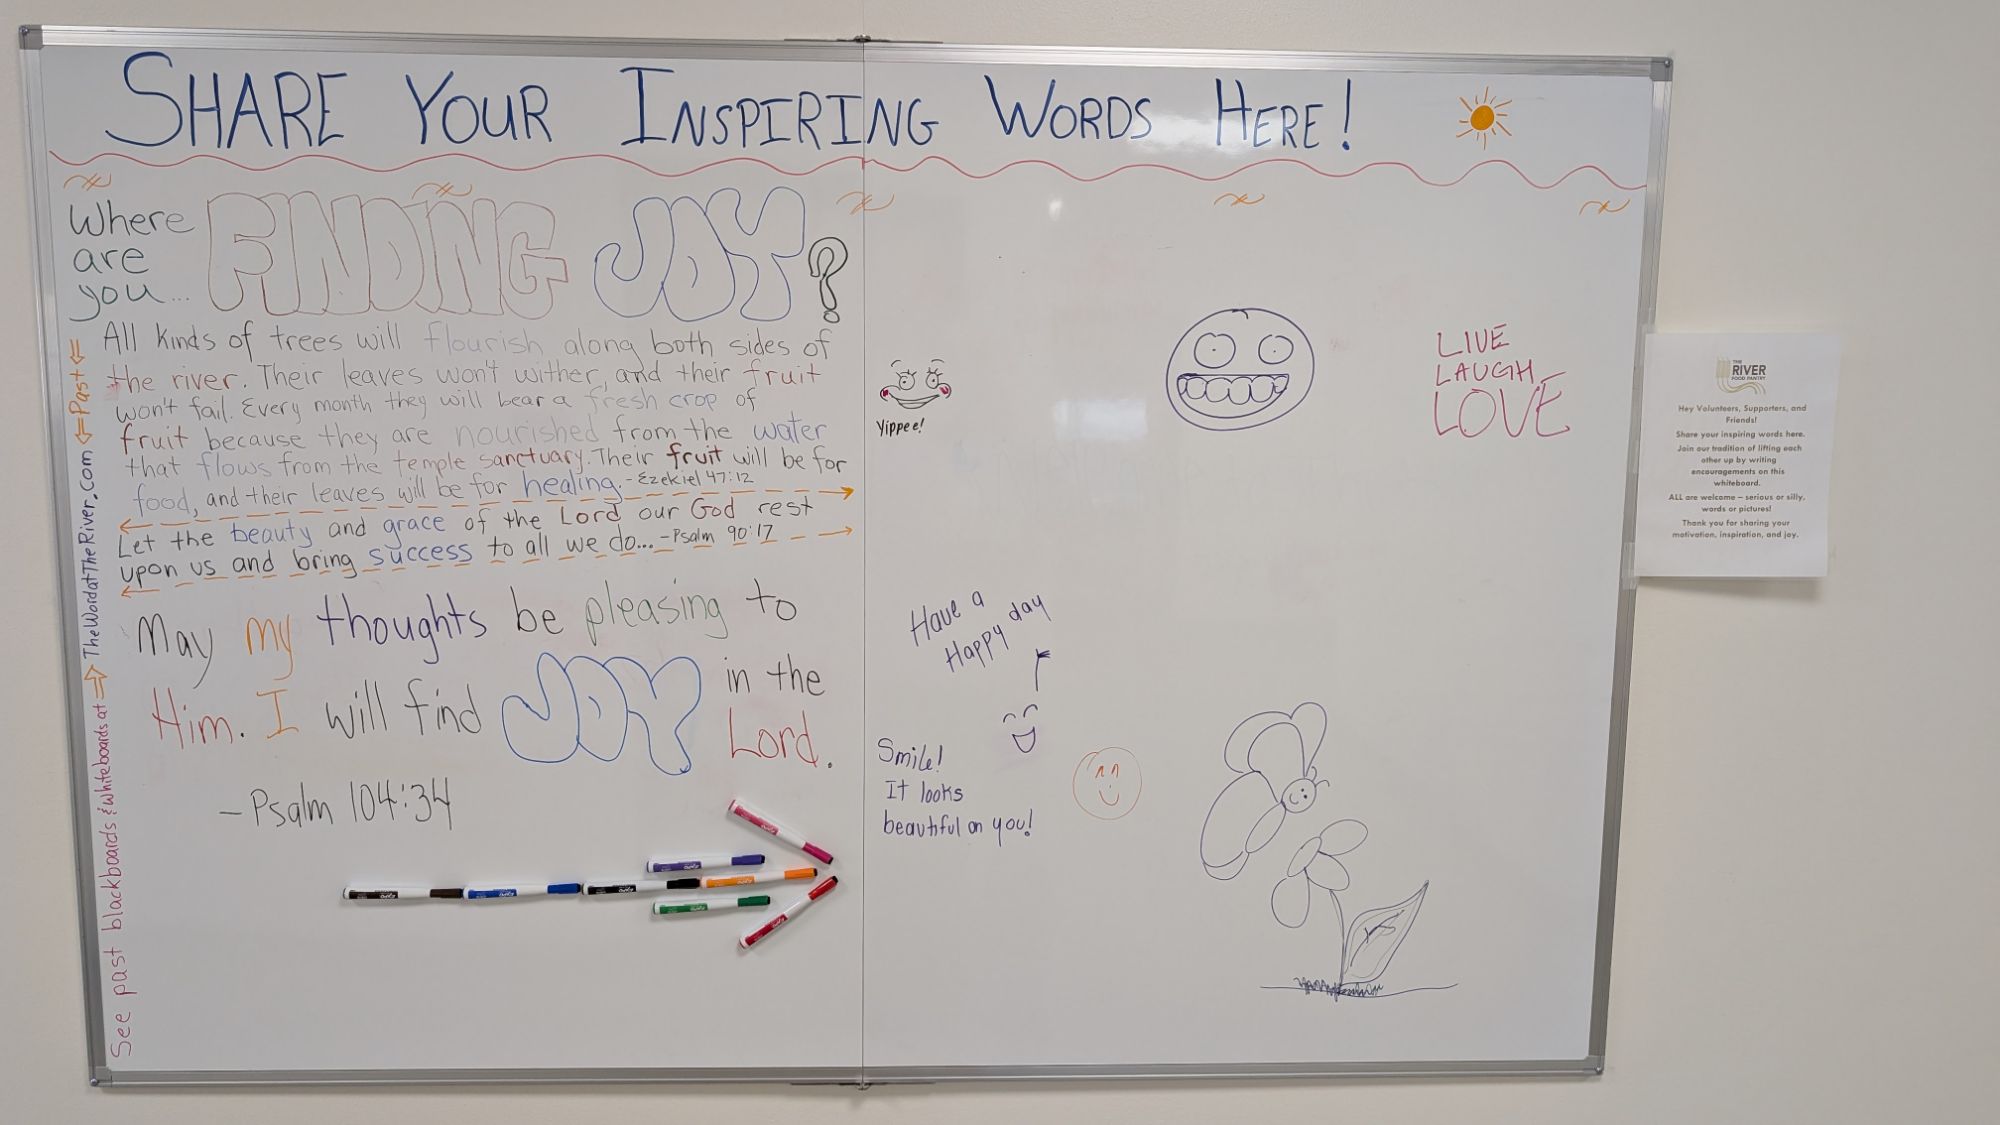 SHARE YOUR INSPIRING WORDS HERE!
Where are you... FINDING JOY?
All kinds of trees will flourish along both sides of
the river. Their leaves won't wither, and their fruit
won't fail. Every month they will bear a fresh crop of
fruit because they are nourished from the water
that flows from the temple sanctuary. Their fruit will be for
food, and their leaves will be for healing. - Ezekiel 47:12
Let the beauty and grace of the Lord our God rest
upon us and bring success to all we do... - Psalm 90:17
May my thoughts be pleasing to
Him. I will find JOY in the
Lord.
- Psalm 104:34
See past blackboards & whiteboards at ⇒ TheWordatTheRiver.com ⇐ Past ⇐
Yippee!
LIVE
LAUGH
LOVE
Have a
Happy day
Smile!
It looks
beautiful on you!
THE
RIVER
FOOD PANTRY
Hey Volunteers, Supporters, and
Friends!
Share your inspiring words here.
Join our tradition of lifting each
other up by writing
encouragements on this
whiteboard.
ALL are welcome – serious or silly,
words or pictures!
Thank you for sharing your
motivation, inspiration, and joy.